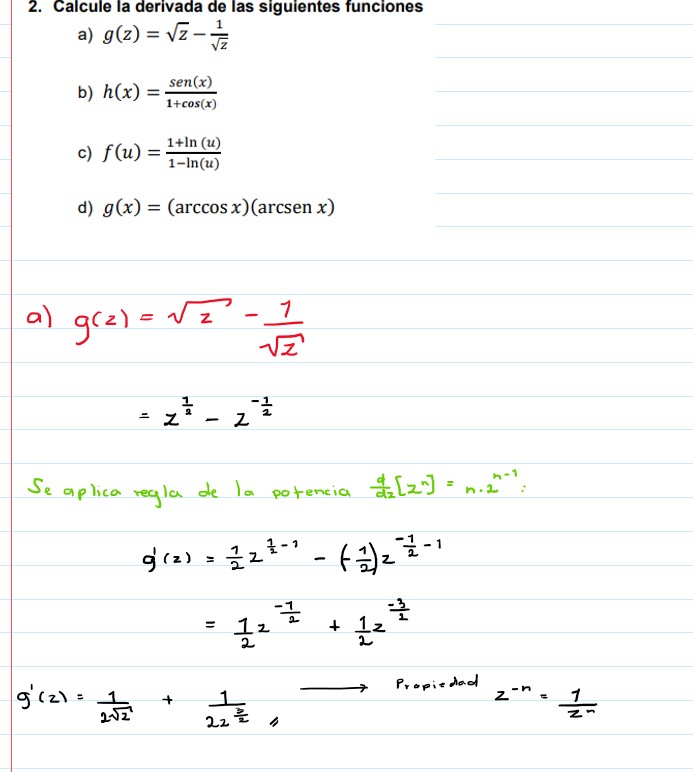 2. Calcule la derivada de las siguientes funciones
a) g(z) = √z − 1/√z
b) h(x) = sen(x)/1+cos(x)
c) f(u) = 1+ln (u)/1−ln(u)
d) g(x) = (arccos x)(arcsen x)
a) g(z) = √z - 1/√z
= z^(1/2) - z^(-1/2)
Se aplica regla de la potencia d/dz[z^n] = n·z^(n-1):
g'(z) = 1/2 z^(1/2 - 1) - (-1/2) z^(-1/2 - 1)
= 1/2 z^(-1/2) + 1/2 z^(-3/2)
g'(z) = 1/(2√z) + 1/(2z^(3/2)) // → Propiedad z^(-n) = 1/z^n